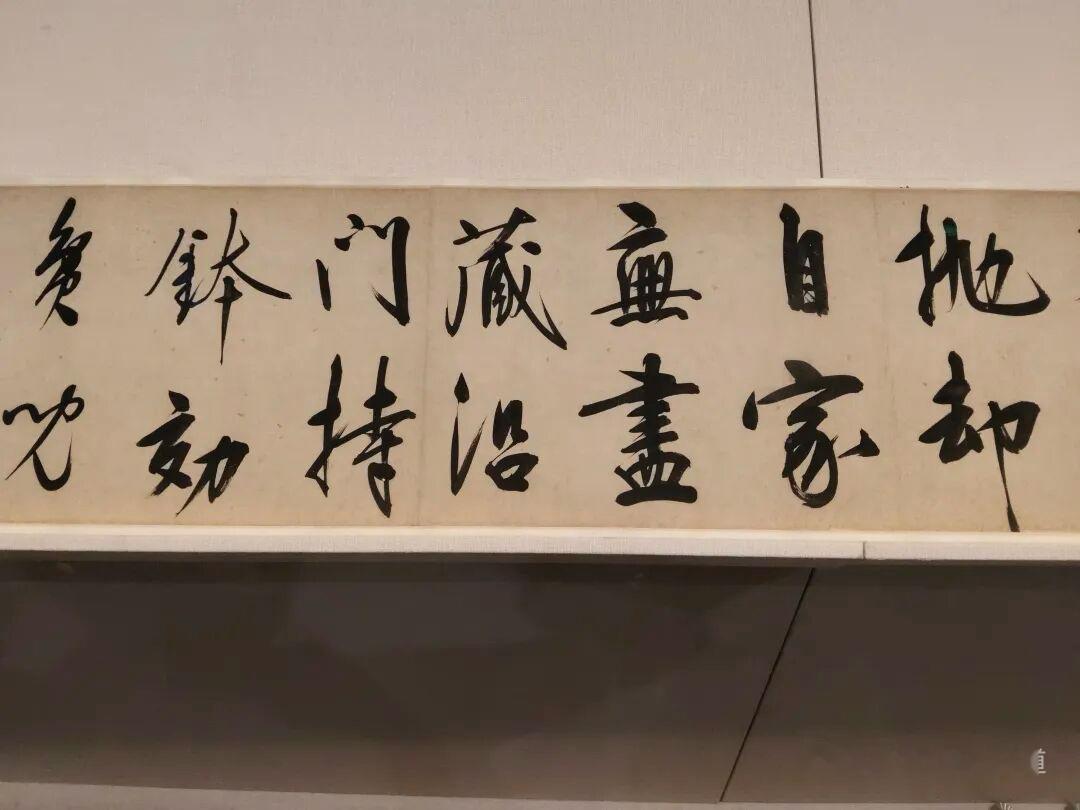 抛却
自家
無盡
藏沿
门持
鉢効
貧児